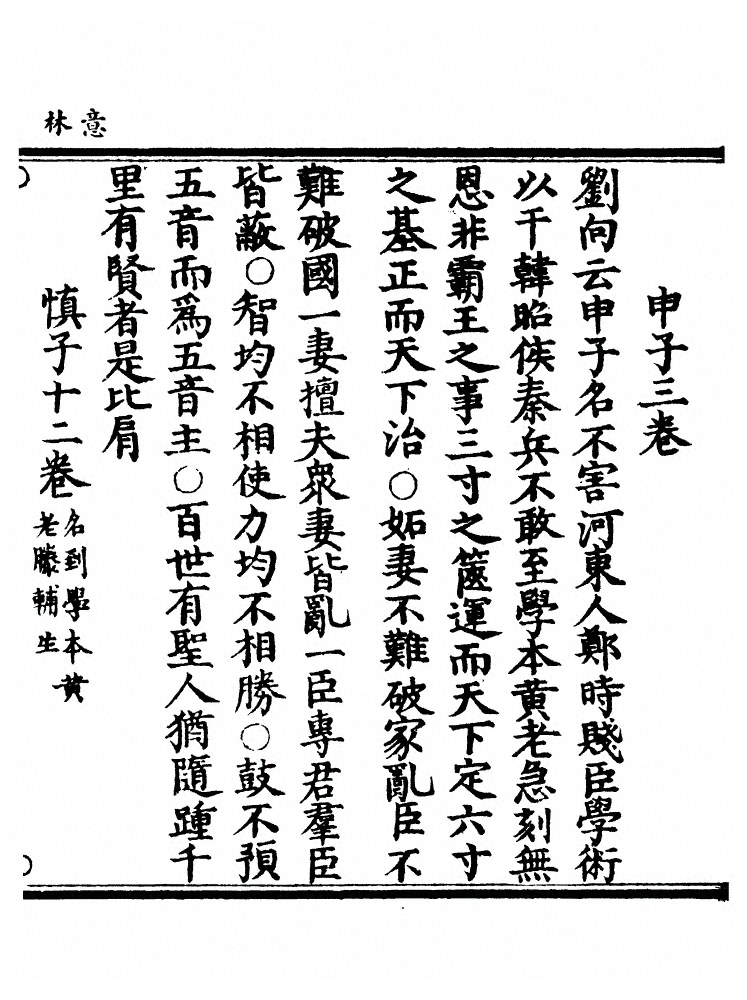 意林
申子三卷
劉向云申子名不害河東人鄭時賤臣學術
以干韓昭侯秦兵不敢至學本黃老急刻無
恩非霸王之事三寸之篋運而天下定六寸
之基正而天下治○妬妻不難破家亂臣不
難破國一妻擅夫衆妻皆亂一臣專君羣臣
皆蔽○智均不相使力均不相勝○鼓不預
五音而爲五音主○百世有聖人猶隨踵千
里有賢者是比肩
慎子十二卷
名到學本黃
老滕輔生